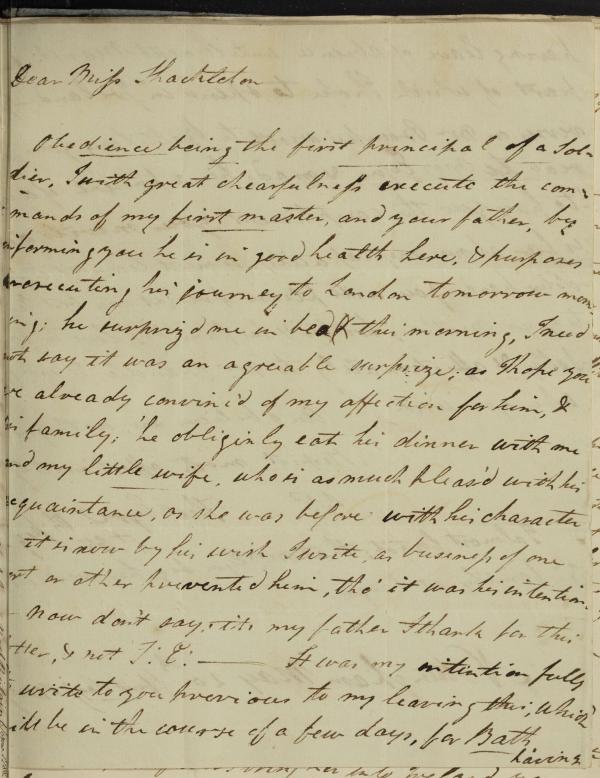 Dear Miss Shackleton
Obedience being the first principal of a Sol-
dier, I with great chearfulness execute the com-
mands of my first master, and your father, by
informing you he is in good health here, & purposes
prosecuting his journey to London tomorrow morn-
ing: he surprizd me in bed this morning, I need
not say it was an agreable surprize; as I hope you
are already convinc'd of my affection for him, &
his family; he obligingly eat his dinner with me
and my little wife, who is as much pleas'd with his
acquaintance, as she was before with his character
it is now by his wish I write, as business of one
sort or other prevented him, tho' it was his intention.
now don't say, it is my father I thank for this
letter, & not T: E: — It was my intention fully
write to you previous to my leaving this, which
will be in the course of a few days, for Bath
having